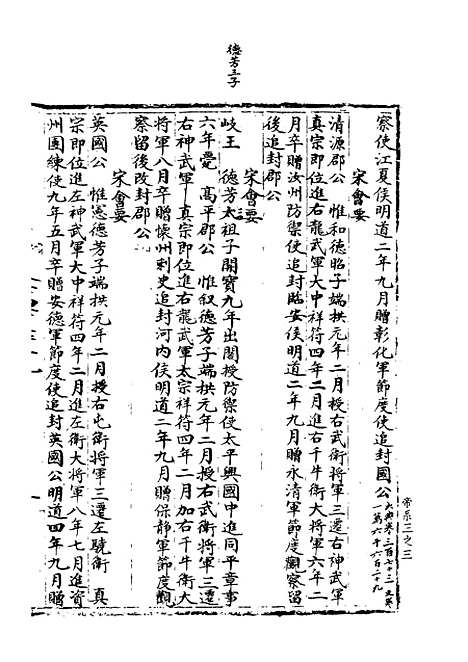 德芳三子
帝系三之三
察使江夏侯明道二年九月贈彰化軍節度使追封國公
宋會要
清源郡公　惟和德昭子端拱元年二月授右武衛將軍三遷右神武軍
真宗即位進右龍武軍大中祥符四年二月進右千牛衛大將軍六年二
月卒贈汝州防禦使追封臨安侯明道二年九月贈永清軍節度觀察留
後追封郡公
宋會要
岐王　德芳太祖子開寶九年出閤授防禦使太平興國中進同平章事
六年薨　高平郡公　惟叙德芳子端拱元年二月授右武衛將軍三遷
右神武軍　真宗即位進右龍武軍太宗祥符四年二月加右千牛衛大
將軍八月卒贈懷州刺史追封河內侯明道二年九月贈保靜軍節度觀
察留後改封郡公
宋會要
英國公　惟憲德芳子端拱元年二月授右屯衛將軍三遷左驍衛　真
宗即位進左神武軍大中祥符四年二月進左衛大將軍八年七月進資
州團練使九年五月卒贈安德軍節度使追封英國公明道四年九月贈